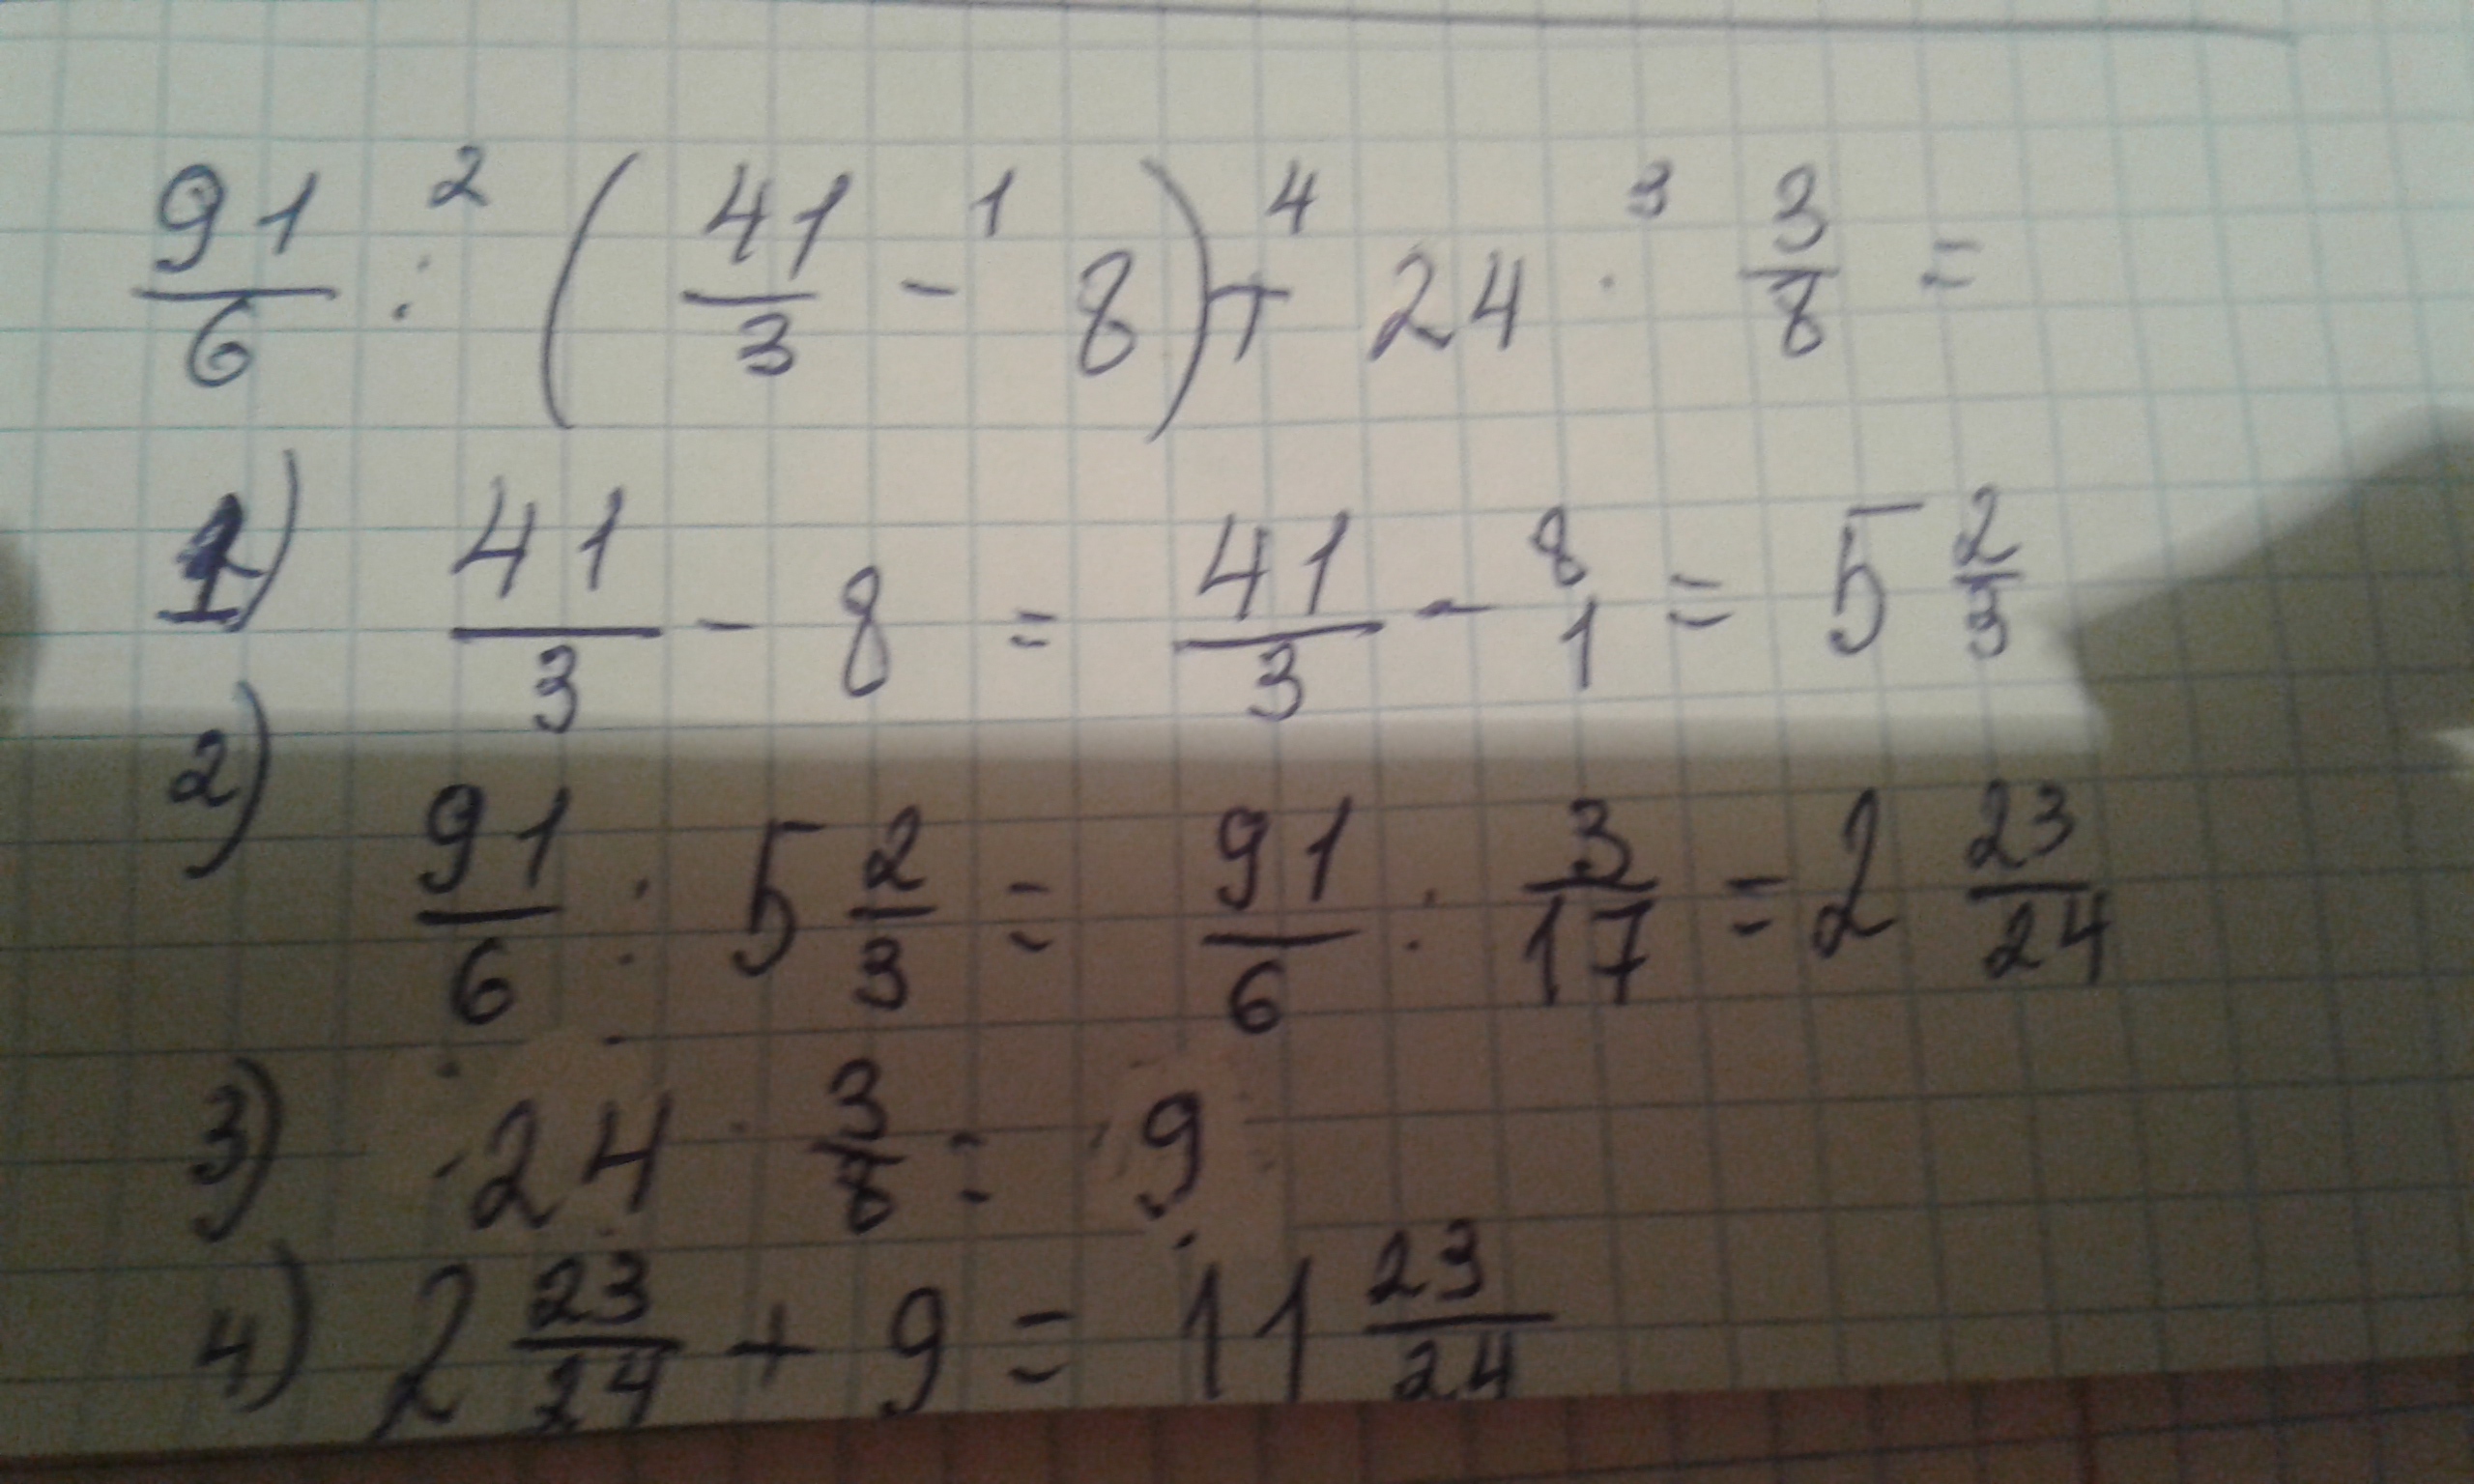 91/6 :² (41/3 -¹ 8) +⁴ 24 ·³ 3/8 =
1) 41/3 - 8 = 41/3 - 8/1 = 5 2/3
2) 91/6 : 5 2/3 = 91/6 : 3/17 = 2 23/24
3) 24 · 3/8 = 9
4) 2 23/24 + 9 = 11 23/24